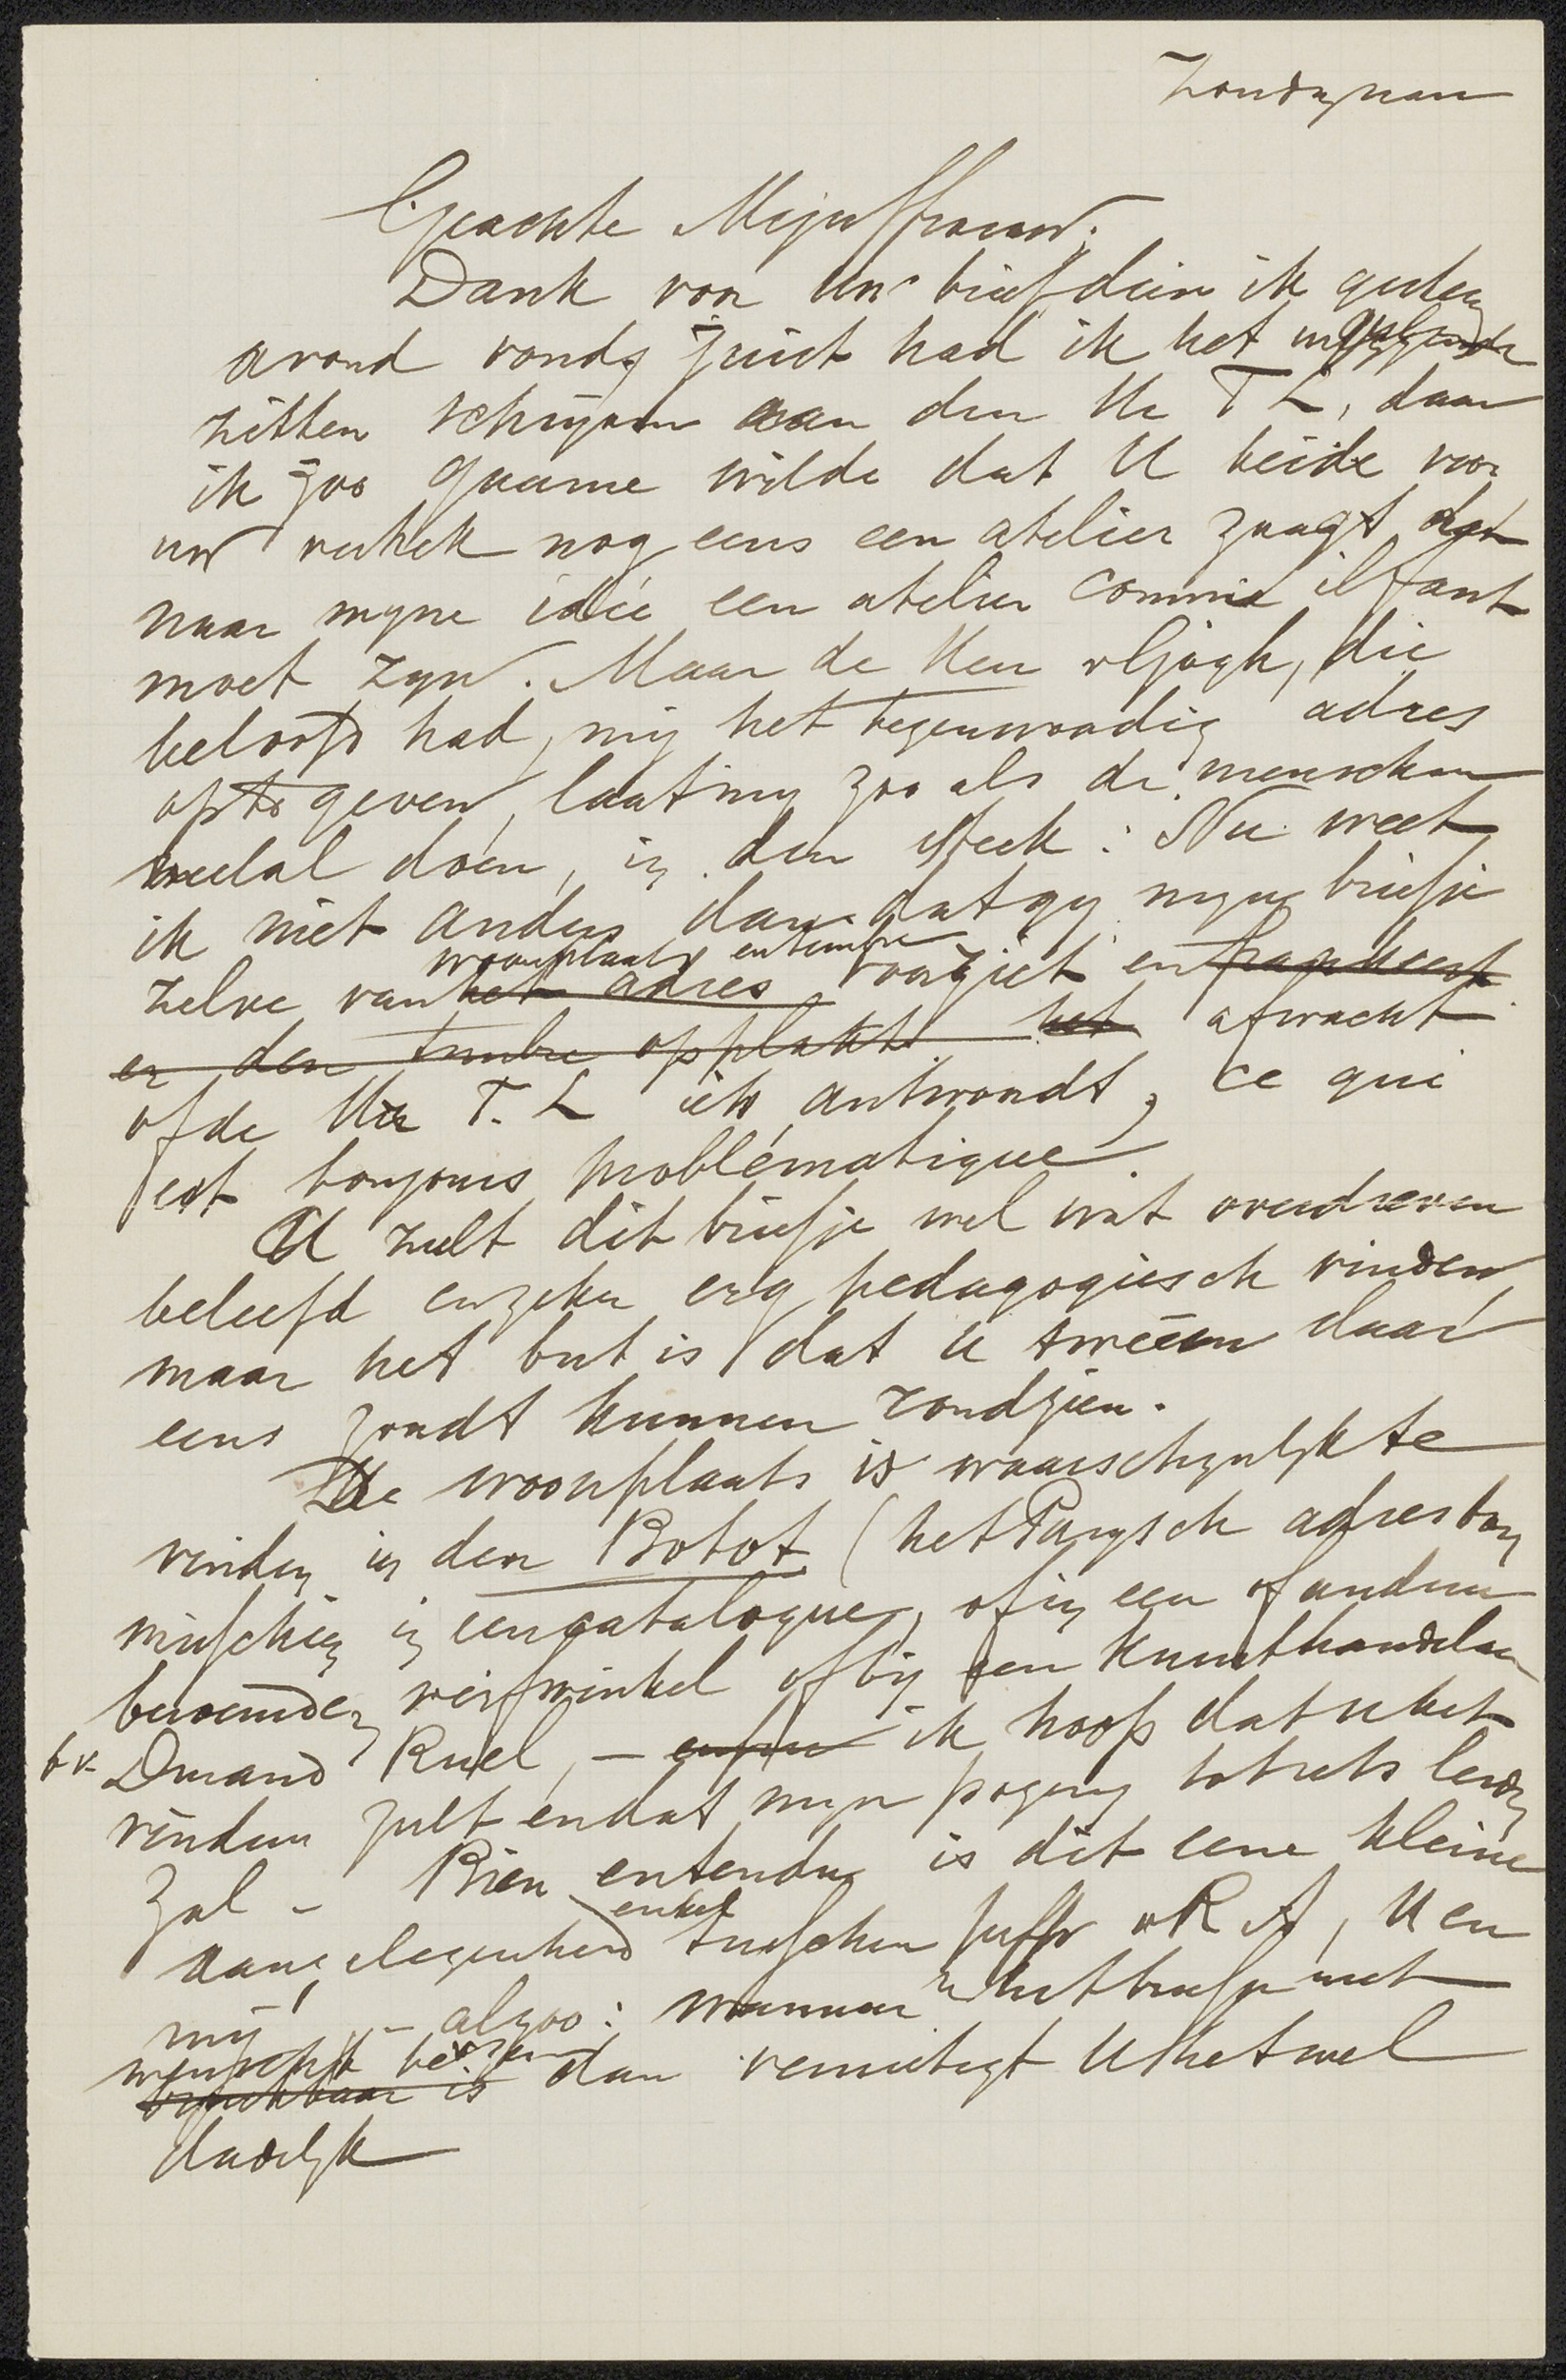 Geachte Mejuffrouw.
Dank voor Uw brief dien ik
avond vond, juist had ik het
zitten schrijven aan den Hr T L, daar
ik zoo gaarne wilde dat U beide voor
uw vertrek nog eens een atelier zaagt dat
naar myne idée een atelier comme il faut
moet zyn. Maar de Heer v Gogh, die
beloofd had, mij het tegenwoordig adres
op te geven, laat my zoo als de menschen
meestal doen, in den steek: Nu weet
ik niet anders dan dat gy myn briefje
woonplaats en timbre
zelve van het adres voorziet en
er den timbre opplakt het afwacht
of de Hr T. L antwoordt, ce qui
est toujours problématique.
U zult dit briefje wel wat overdreven
beleefd en zeker erg pedagogiesch vinden,
maar het but is dat u tweeën daar
eens zoudt kunnen rondzien.
De woonplaats is waarschynlyk te
vinden in den Botot (het Parysch adresboek
misschien in een catalogue, of in een of anderen
beroemden verfwinkel of by een Kunsthandelaar
bv. Durand Ruel, — enfin ik hoop dat u het
vinden zult en dat myn poging tot iets leiden
zal – Bien entendu is dit eene kleine
enkel
aangelegenheid tusschen Juffr v R A, U en
mij, – alzoo: wanneer U het briefje niet
wenscht te
bruikbaar is dan vernietigt U het wel
dadelyk